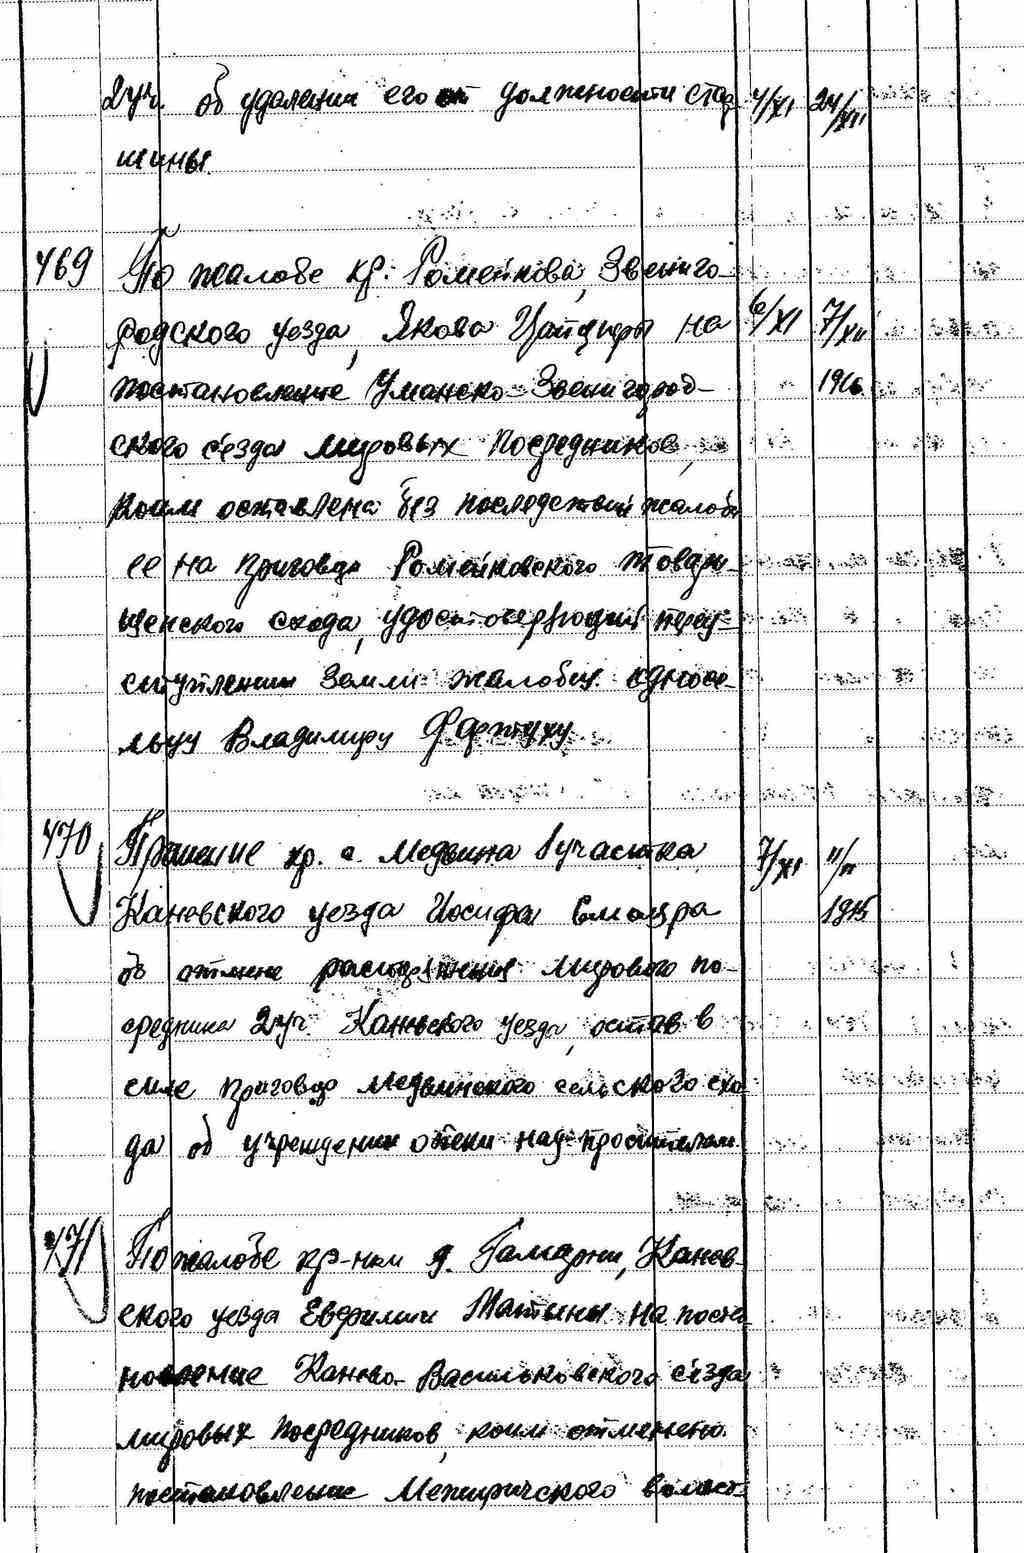 2 уч. об удалении его от должности стар- 4/XI 24/XII
шины.
469 По жалобе кр. Ромейкова, Звениго-
родского уезда, Якова на 6/XI 7/XII
постановление Уманско-Звенигород- 1916
ского съезда мировых посредников,
коим оставлена без последствий жалоба
ее на приговор Ромейковского товари-
щенского схода, удостоверяющий переу-
ступлении земли жалобщ. односе-
льцу Владимиру
470 Прошение кр. с. Медвина 1 участка 7/XI 11/II
Каневского уезда Иосифа 1915
об отмене распоряжения мирового по-
средника 2 уч. Каневского уезда, остав в
силе приговор Медвинского сельского схо-
да об учреждении опеки над просителем.
471 По жалобе кр-нки д. Гамарни, Канев-
ского уезда Евфимии на поста-
новление Канево-Васильковского съезда
мировых посредников, коим отменено
постановление Межиричского волост-